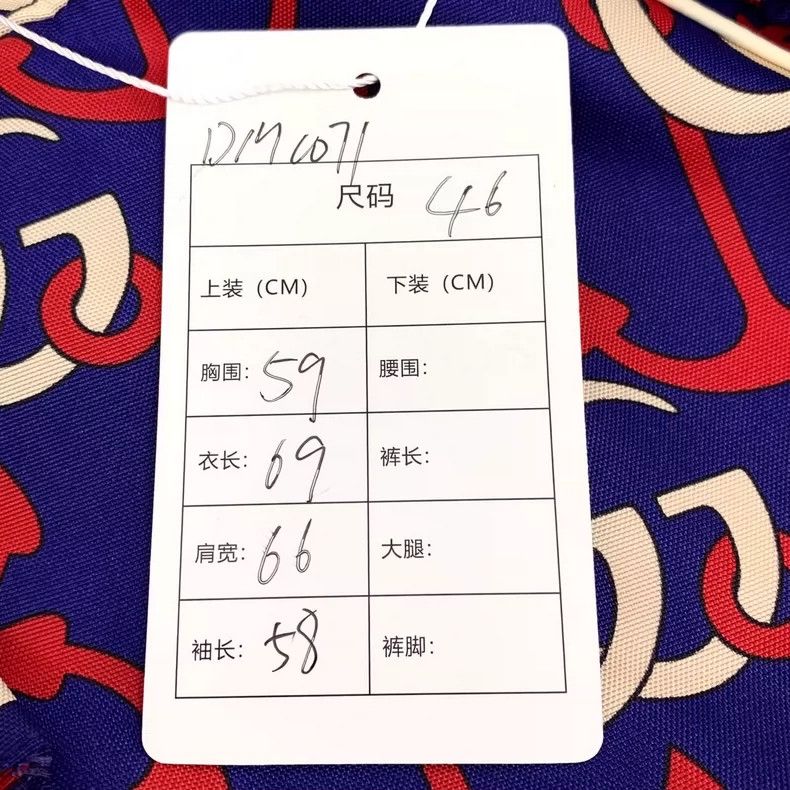 DM6071
尺码 46
上装（CM） 下装（CM）
胸围: 59 腰围:
衣长: 69 裤长:
肩宽: 66 大腿:
袖长: 58 裤脚: